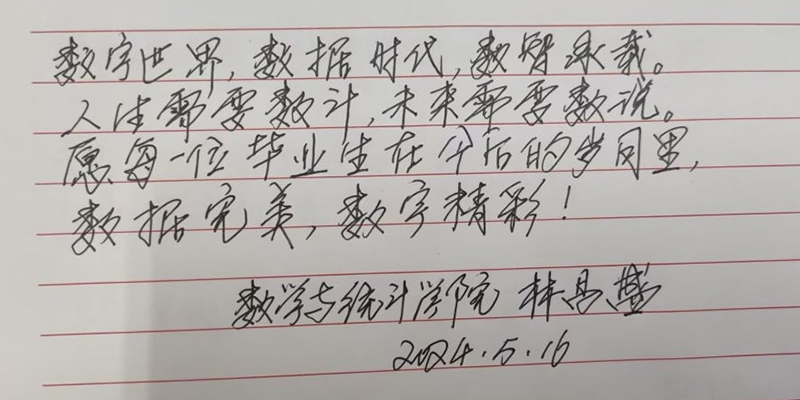 数字世界,数据时代,数智承载。
人生需要数计,未来需要数说。
愿每一位毕业生在今后的岁月里,
数据完美,数字精彩!
数学与统计学院 林昌盛
2024.5.16